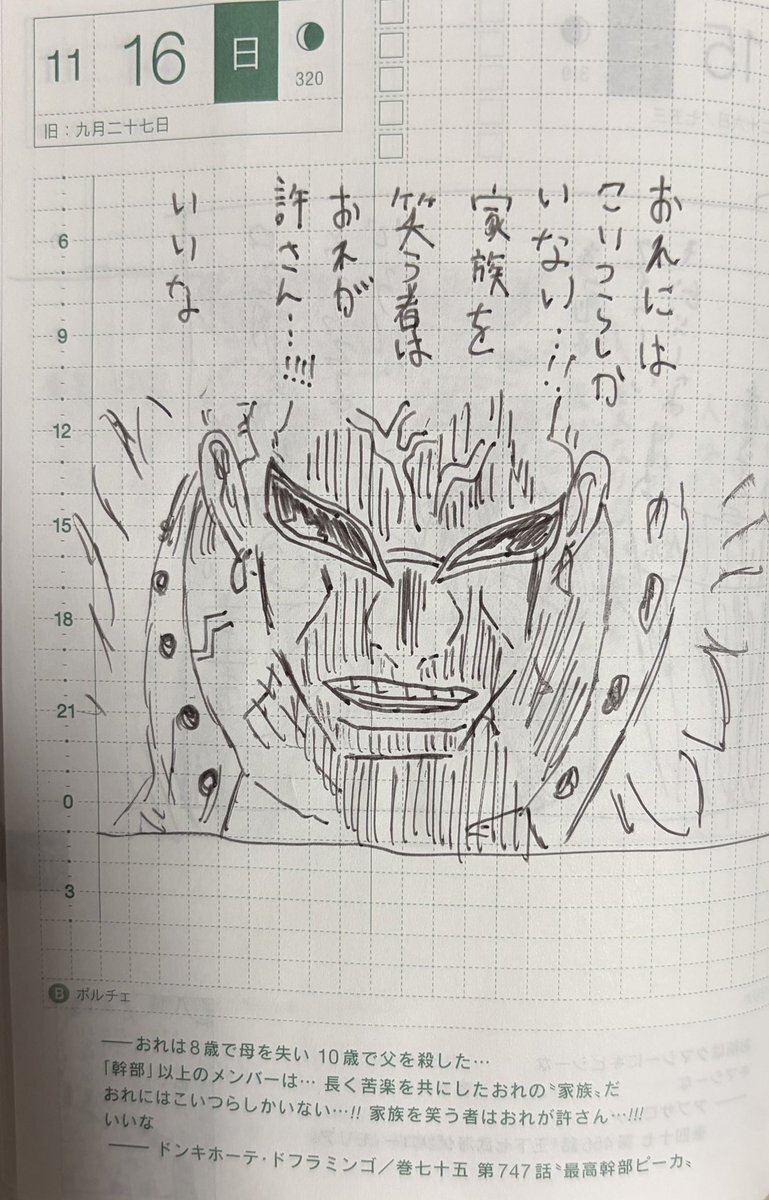 11 16 日 320
旧：九月二十七日
おれには
こいつらしか
いない…!!
家族を
笑う者は
おれが
許さん…!!!
いいな
6
9
12
15
18
21
0
3
B ポルチェ
──おれは8歳で母を失い 10歳で父を殺した…
「幹部」以上のメンバーは… 長く苦楽を共にしたおれの〝家族〟だ
おれにはこいつらしかいない…!! 家族を笑う者はおれが許さん…!!!
いいな
── ドンキホーテ・ドフラミンゴ／巻七十五 第747話〝最高幹部ピーカ〟